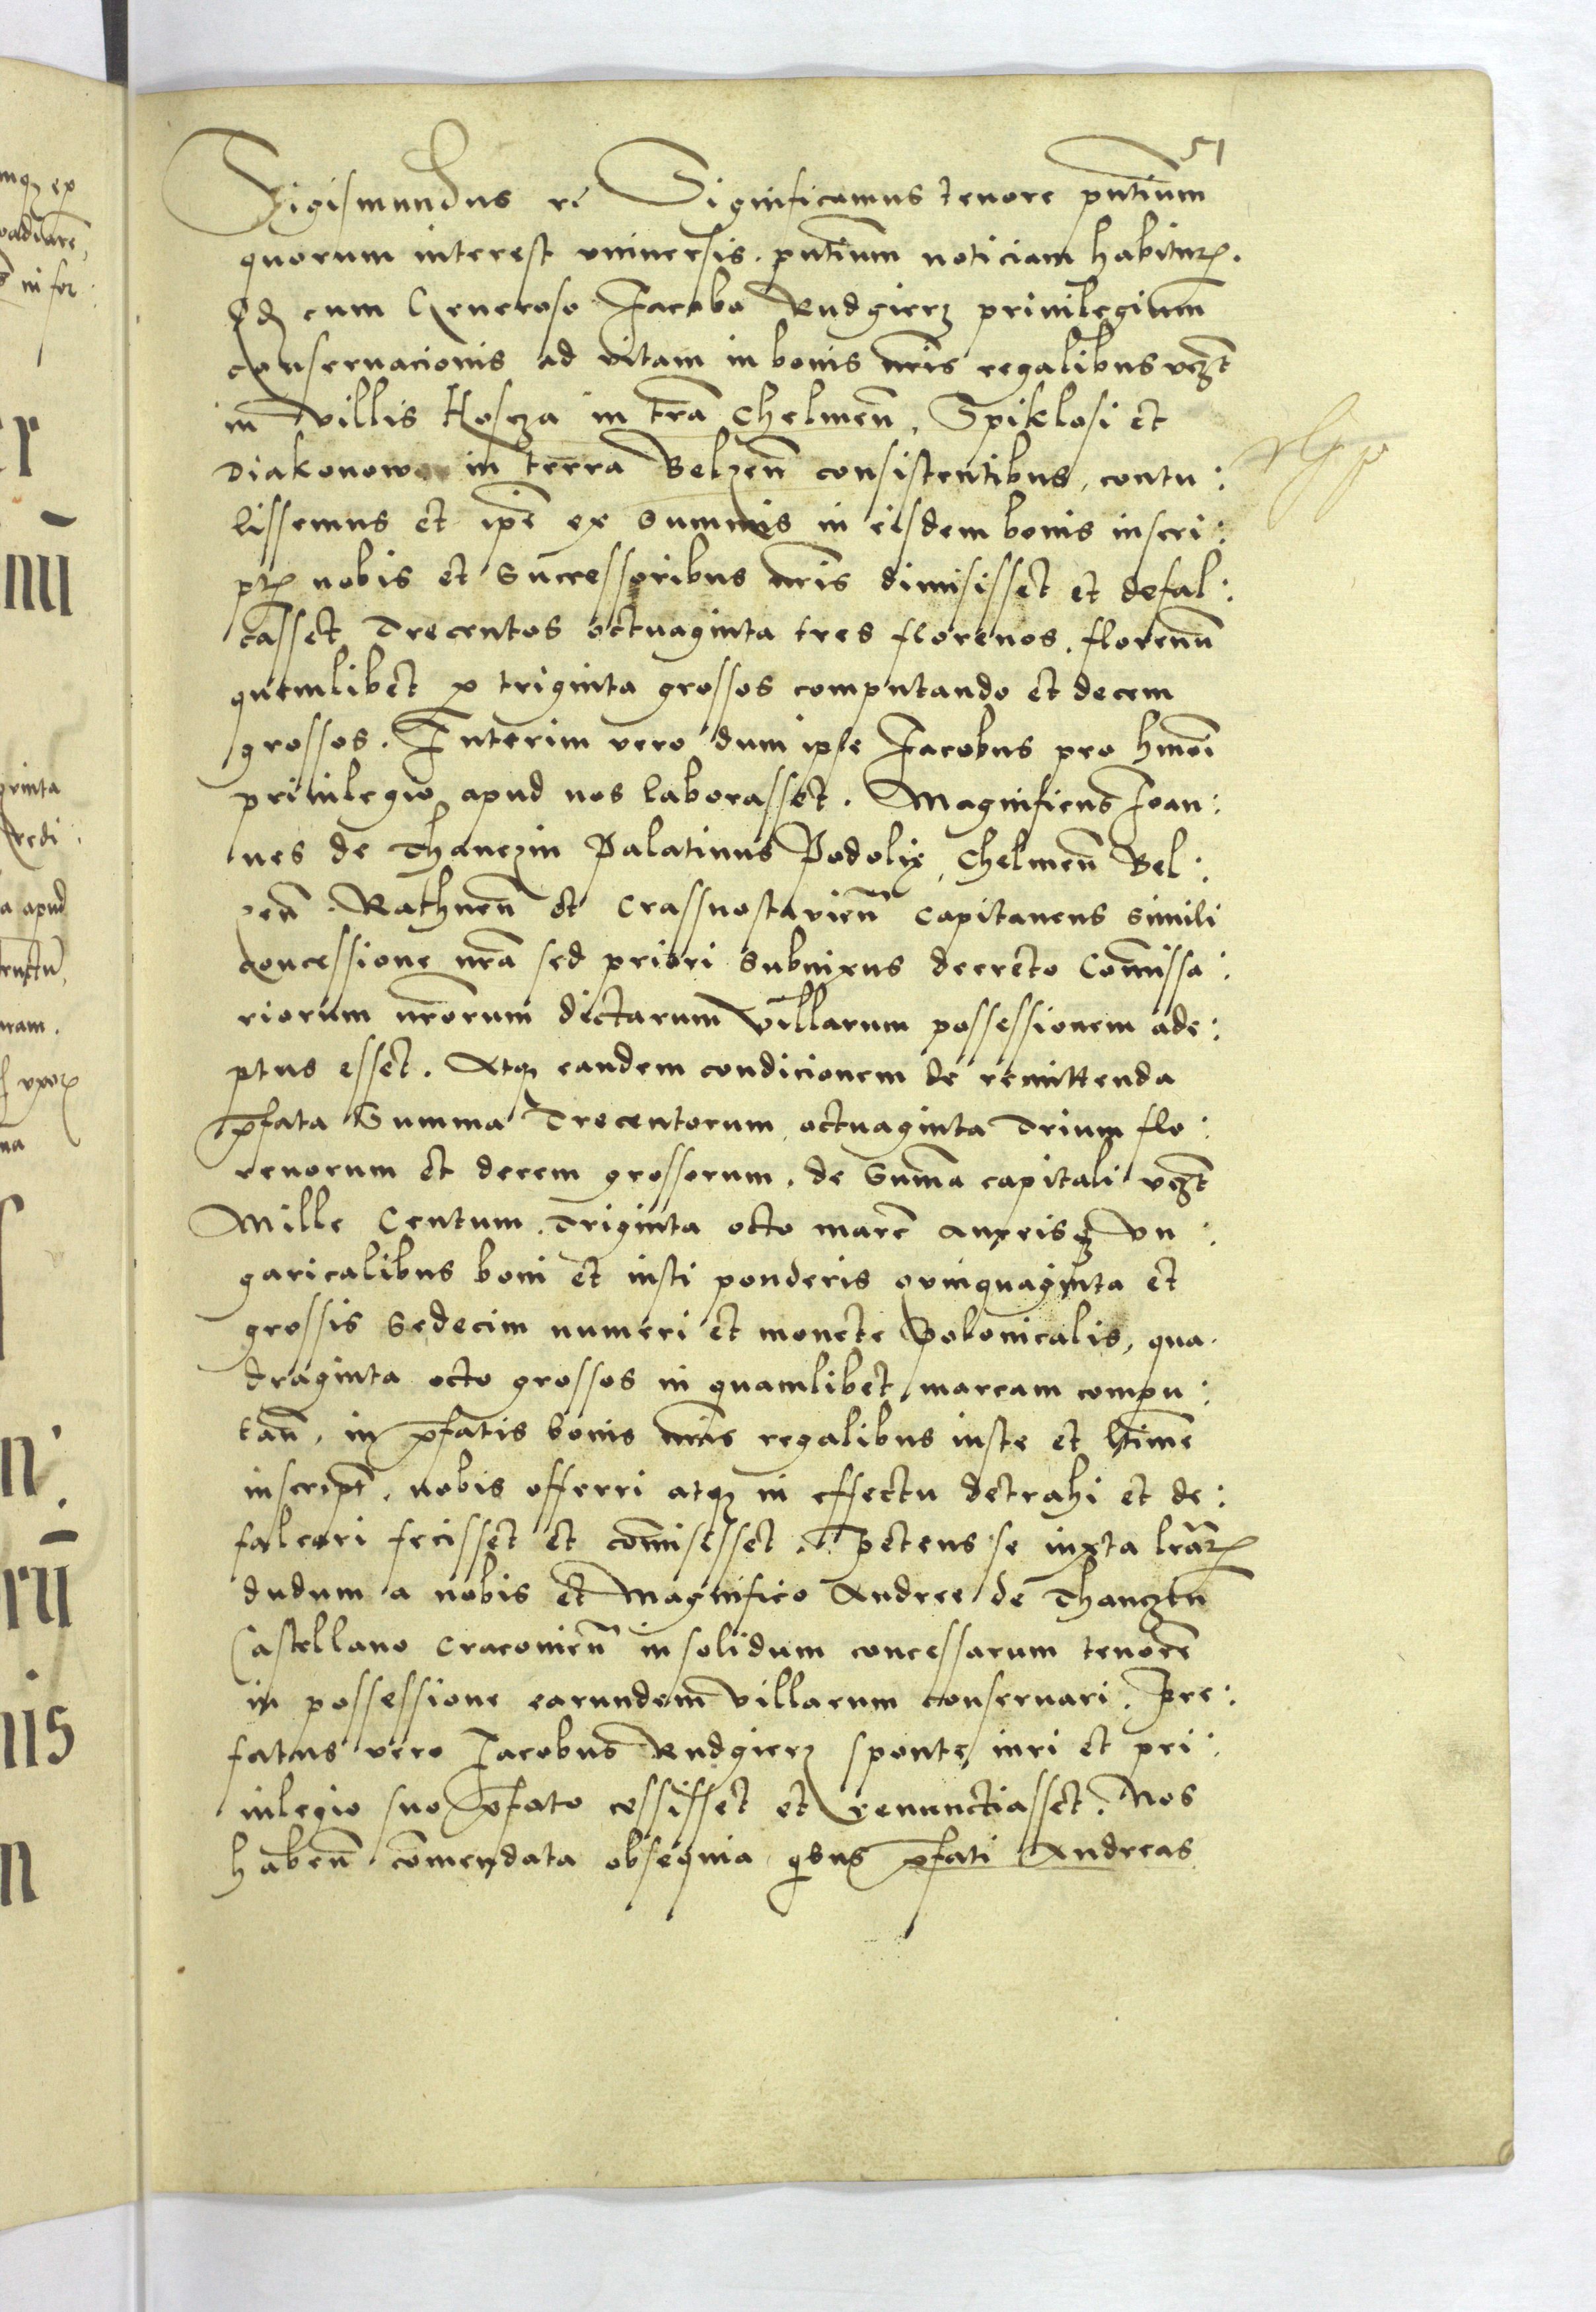 51
Sigismundus rc̃ Significamus tenore pñtium
quorum interest vniuersis . pñtium noticiam habitur̃ .
Qd̃ cum Generoso Jacobo Rudgierz priuilegium
conseruacionis ad vitam in bonis nr̃is regalibus vꝫt
in villis Hoscza in tr̃a Chelmeñ , Spiklosi et
Diakonow in terra Belzeñ consistentibus , contu :
lissemus et ip̃e ex summis in eisdem bonis inscri :
pt̃ nobis et Successoribus nr̃is dimisisset et defal :
casset Trecentos octuaginta tres florenos , florenũ
quemlibet ꝑ triginta grossos computando et decem
grossos . Interim vero dum ipse Jacobus pro hmõi
priuilegio apud nos laborasset . Magnificus Joan :
nes de Thanczin Palatinus Podolię , Chelmeñ Bel :
zeñ . Rathneñ et Crassnostauieñ Capitaneus simili
concessione nr̃a sed priori subnixus decreto Com̃issa :
riorum nr̃orum dictarum villarum possessionem ade :
ptus esset . Atqꝫ eandem condicionem de remittenda
p̃fata Summa Trecentorum octuaginta Trium flo :
renorum et decem grossorum , de Sum̃a capitali vꝫt
Mille Centum Triginta octo marc̃ aureisqꝫ Vn :
garicalibus boni et iusti ponderis quinquaginta et
grossis sedecim numeri et monete Polonicalis , qua .
draginta octo grossos in quamlibet marcam compu :
tañ , in p̃fatis bonis nr̃is regalibus iuste et ltime
inscript̃ , nobis offerri atqꝫ in effectu detrahi et de :
falcari fecisset et com̃isisset . Petens se iuxta lr̃ar̃
dudum a nobis et Magnifico Andree de Thanczin
Castellano Cracouieñ in solidum concessarum tenorẽ
in possessione earundem villarum conseruari . Pre :
fatus vero Jacobus Rudgierz sponte iuri et pri :
uilegio suo p̃fato cessisset et renunctiasset . Nos
habeñ com̃endata obsequia qᵇus p̃fati Andreas